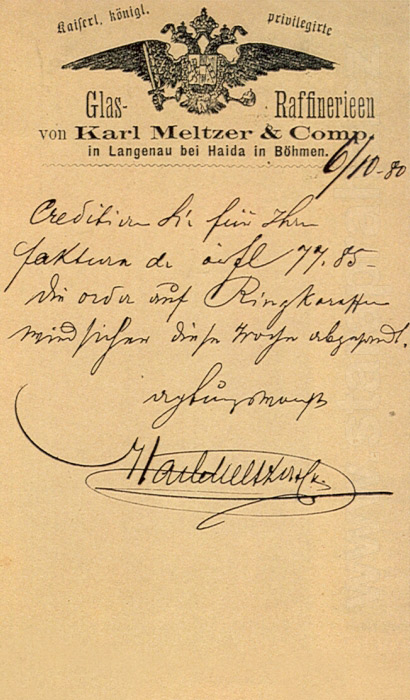 Kaiserl. königl. privilegirte
Glas- Raffinerieen
von Karl Meltzer & Comp.
in Langenau bei Haida in Böhmen.
6/10-80
Creditiren Sie für Ihre
faktura d. öfl 77.85-
die order auf Ringkaraffen
wird sicher diese Woche abgesandt.
achtungsvoll
Karl Meltzer & Co.